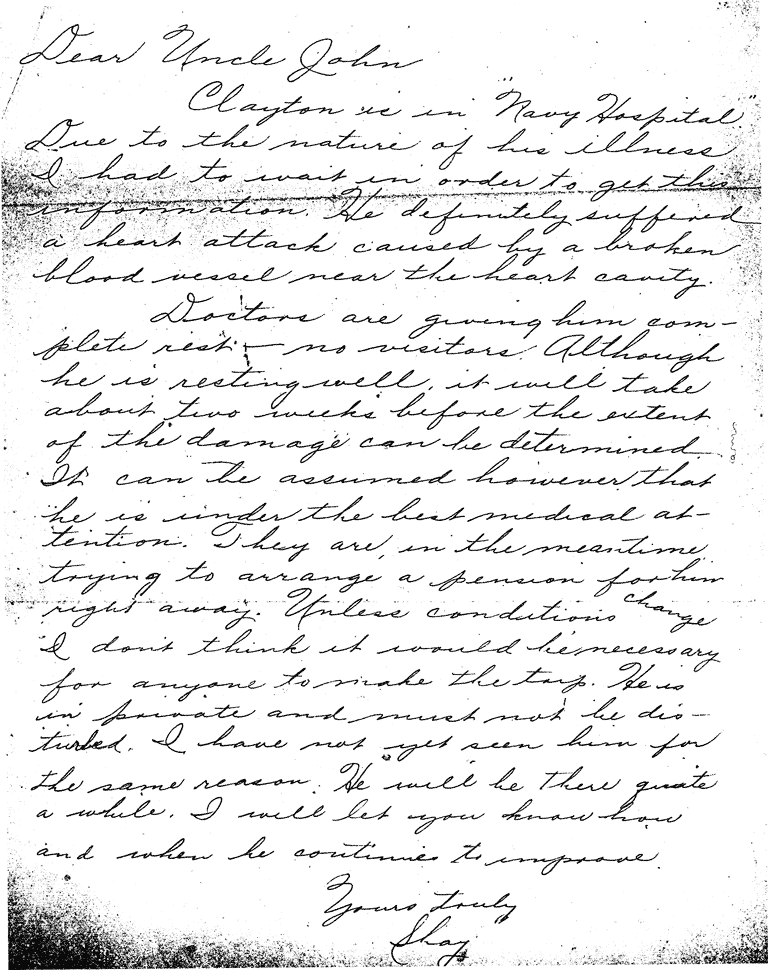 Dear Uncle John
Clayton is in "Navy Hospital."
Due to the nature of his illness
I had to wait in order to get this
information. He definitely suffered
a heart attack caused by a broken
blood vessel near the heart cavity.
Doctors are giving him com-
plete rest — no visitors. Although
he is resting well, it will take
about two weeks before the extent
of the damage can be determined.
It can be assumed however that
he is under the best medical at-
tention. They are, in the meantime,
trying to arrange a pension for him
right away. Unless conditions change
I dont think it would be necessary
for anyone to make the trip. He is
in private and must not be dis-
turbed. I have not yet seen him for
the same reason. He will be there quite
a while. I will let you know how
and when he continues to improve.
Yours truly
Shay